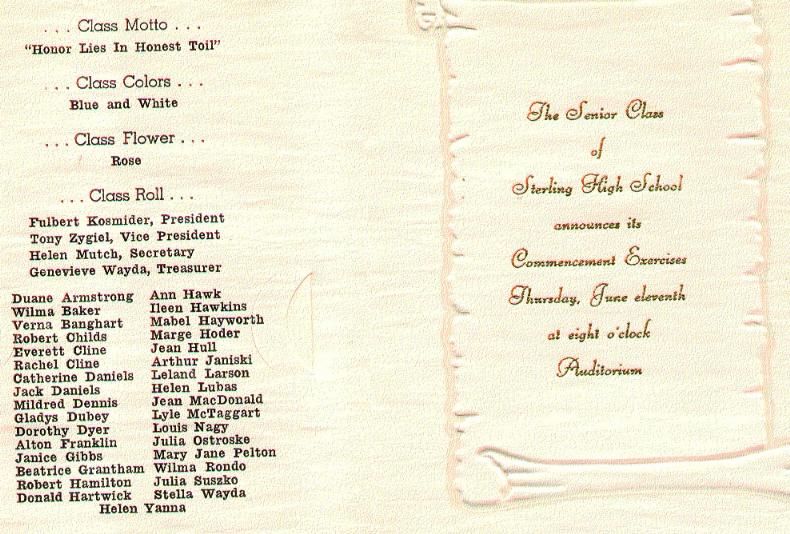 . . . Class Motto . . .
"Honor Lies In Honest Toil"
. . . Class Colors . . .
Blue and White
. . . Class Flower . . .
Rose
. . . Class Roll . . .
Fulbert Kosmider, President
Tony Zygiel, Vice President
Helen Mutch, Secretary
Genevieve Wayda, Treasurer
Duane Armstrong
Wilma Baker
Verna Banghart
Robert Childs
Everett Cline
Rachel Cline
Catherine Daniels
Jack Daniels
Mildred Dennis
Gladys Dubey
Dorothy Dyer
Alton Franklin
Janice Gibbs
Beatrice Grantham
Robert Hamilton
Donald Hartwick
Ann Hawk
Ileen Hawkins
Mabel Hayworth
Marge Hoder
Jean Hull
Arthur Janiski
Leland Larson
Helen Lubas
Jean MacDonald
Lyle McTaggart
Louis Nagy
Julia Ostroske
Mary Jane Pelton
Wilma Rondo
Julia Suszko
Stella Wayda
Helen Yanna
The Senior Class
of
Sterling High School
announces its
Commencement Exercises
Thursday, June eleventh
at eight o'clock
Auditorium